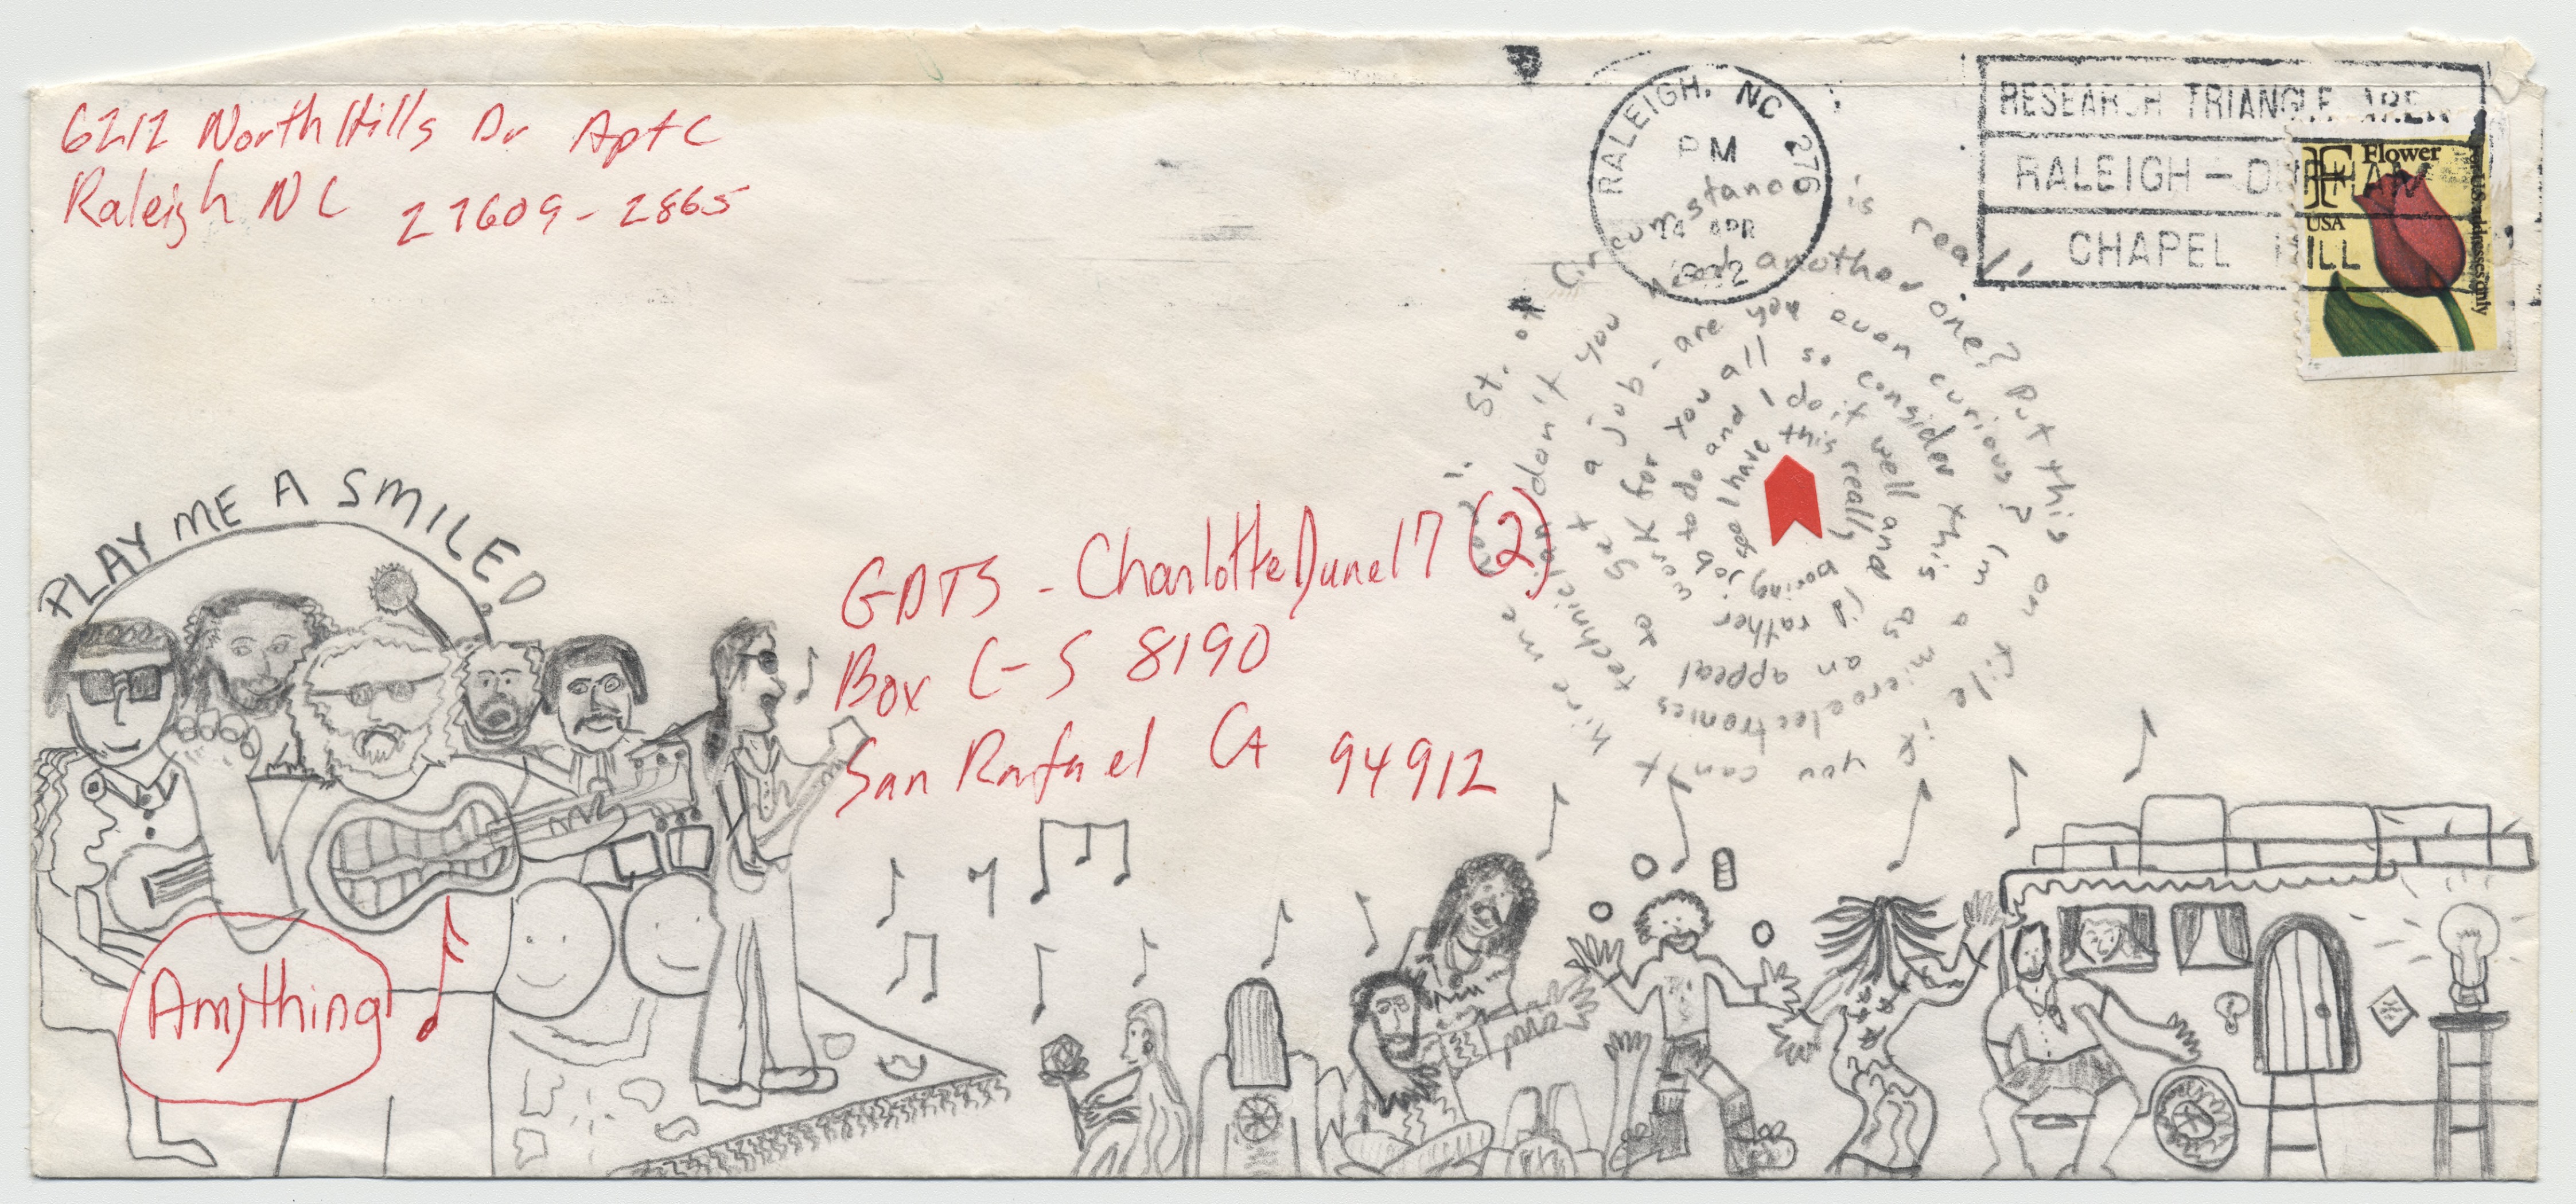 6212 North Hills Dr Apt C
Raleigh NC 27609-2865
RALEIGH, NC 276
PM
14 APR
1992
RESEARCH TRIANGLE AREA
RALEIGH - DURHAM
CHAPEL HILL
F Flower
USA
For U.S. addresses only
I have this really boring job to do and I do it well and I'd rather work for you all so consider this as an appeal to get a job - are you even curious? I'm a microelectronics technician don't you need another one? Put this on file if you can't hire me St. of Circumstance is real!
PLAY ME A SMILE
GDTS - Charlotte June 17 (2)
Box C-S 8190
San Rafael CA 94912
Anything